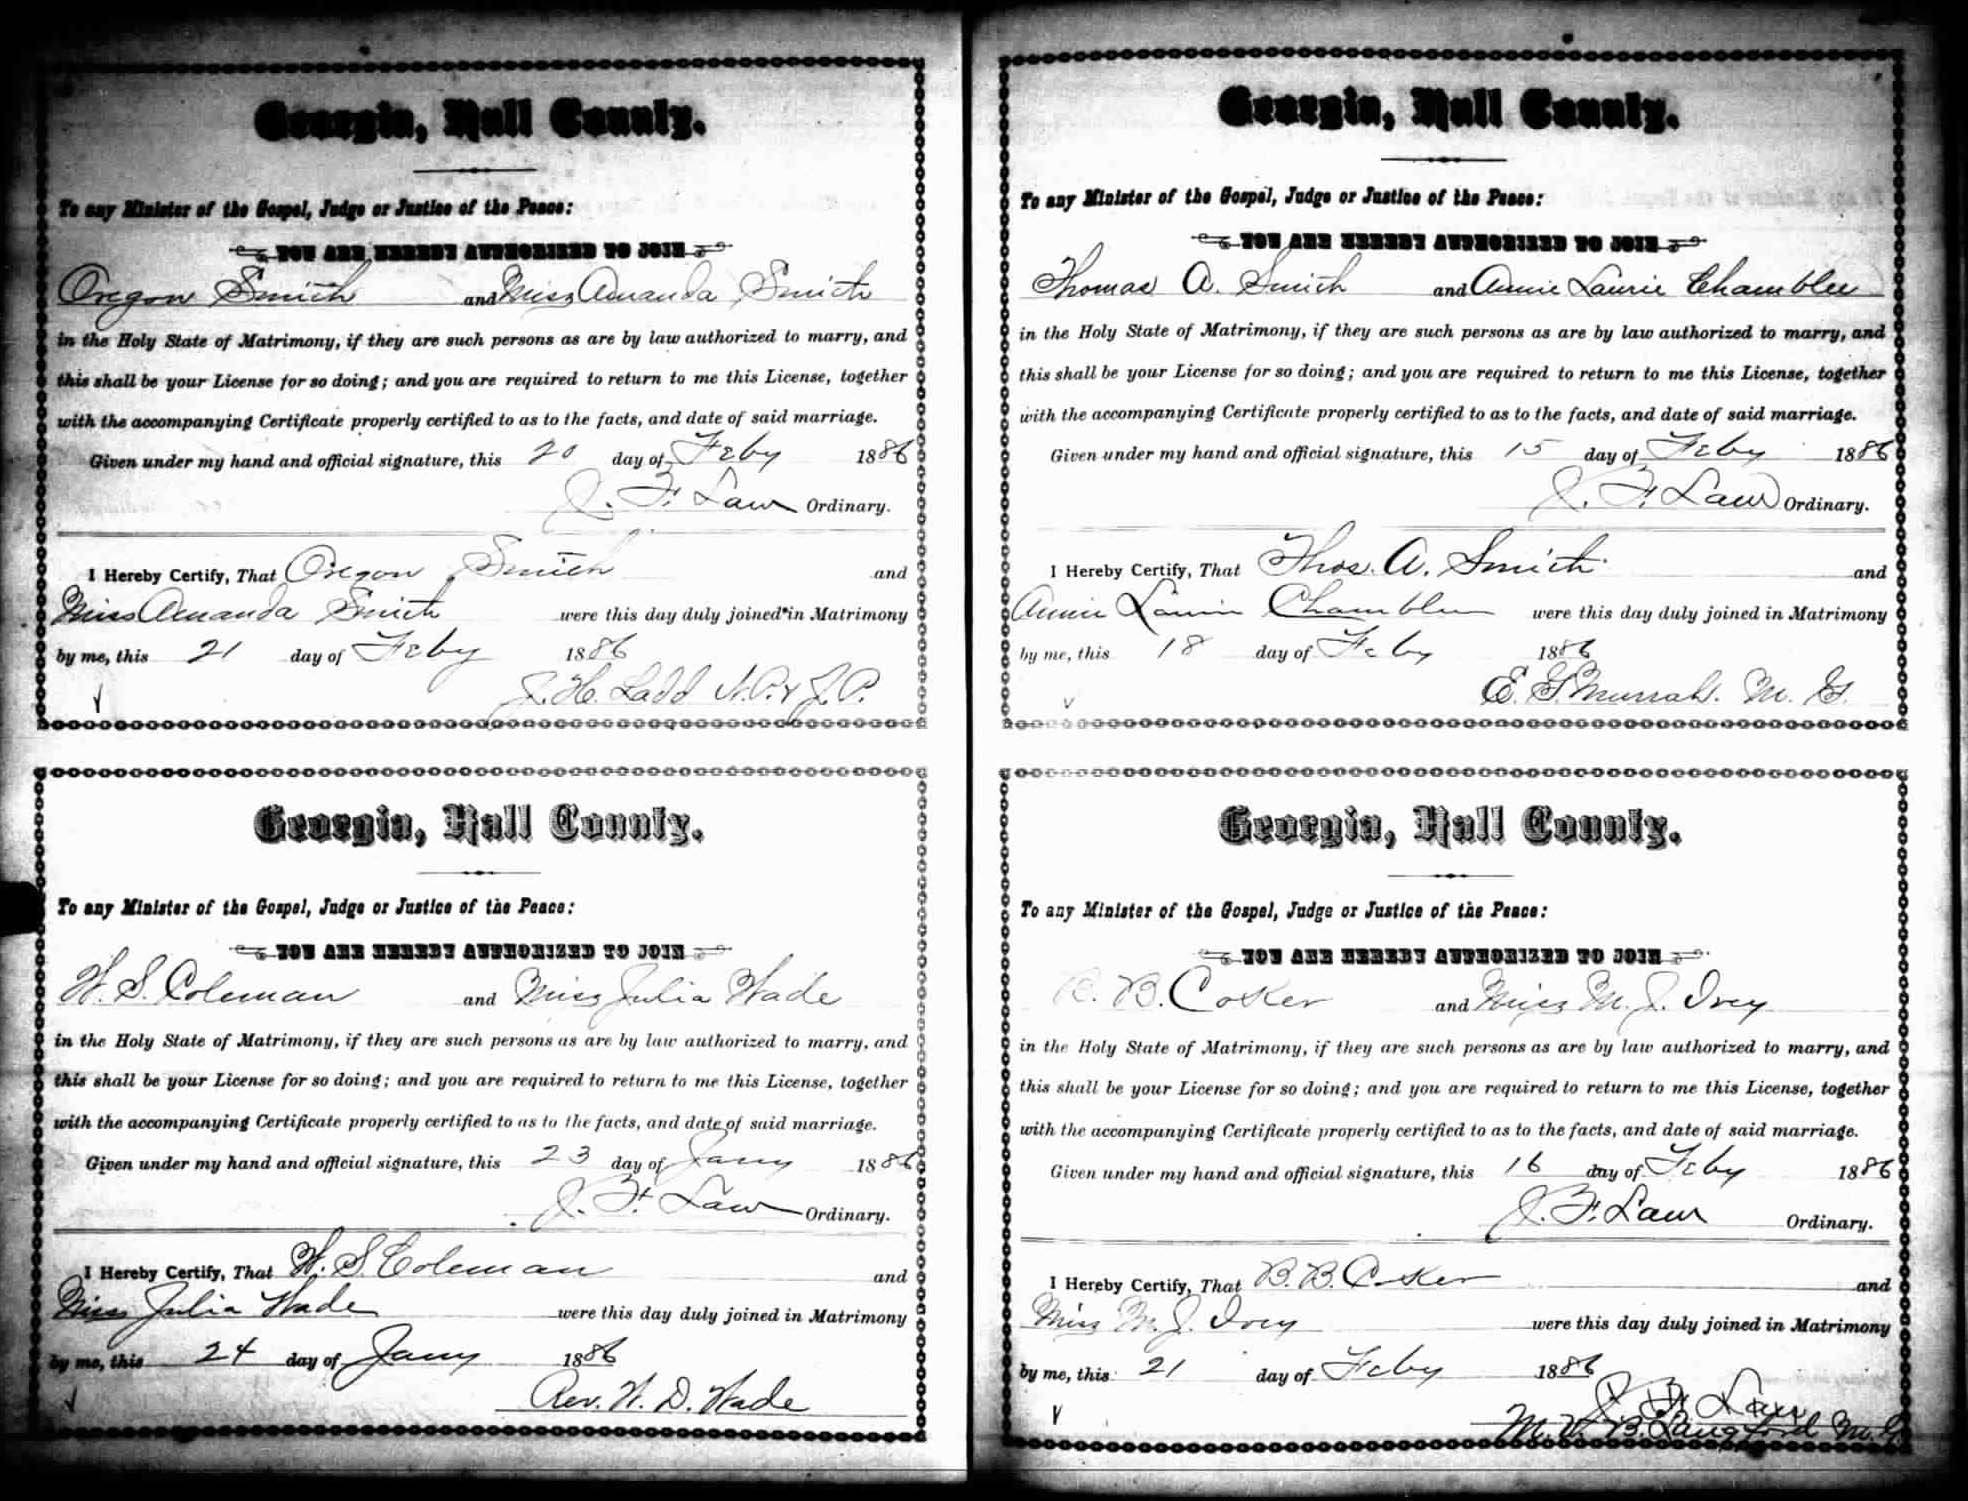 Georgia, Hall County.
To any Minister of the Gospel, Judge or Justice of the Peace:
YOU ARE HEREBY AUTHORIZED TO JOIN
Oregon Smith and Miss Amanda Smith
in the Holy State of Matrimony, if they are such persons as are by law authorized to marry, and
this shall be your License for so doing; and you are required to return to me this License, together
with the accompanying Certificate properly certified to as to the facts, and date of said marriage.
Given under my hand and official signature, this 20 day of Feby 1886
J. F. Law Ordinary.
I Hereby Certify, That Oregon Smith and
Miss Amanda Smith were this day duly joined in Matrimony
by me, this 21 day of Feby 1886
J. H. Ladd N.P. & J.P.
Georgia, Hall County.
To any Minister of the Gospel, Judge or Justice of the Peace:
YOU ARE HEREBY AUTHORIZED TO JOIN
W. S. Coleman and Miss Julia Wade
in the Holy State of Matrimony, if they are such persons as are by law authorized to marry, and
this shall be your License for so doing; and you are required to return to me this License, together
with the accompanying Certificate properly certified to as to the facts, and date of said marriage.
Given under my hand and official signature, this 23 day of Jany 1886
J. F. Law Ordinary.
I Hereby Certify, That W. S. Coleman and
Miss Julia Wade were this day duly joined in Matrimony
by me, this 24 day of Jany 1886
Rev. W. D. Wade
Georgia, Hall County.
To any Minister of the Gospel, Judge or Justice of the Peace:
YOU ARE HEREBY AUTHORIZED TO JOIN
Thomas A. Smith and Annie Laurie Chamblee
in the Holy State of Matrimony, if they are such persons as are by law authorized to marry, and
this shall be your License for so doing; and you are required to return to me this License, together
with the accompanying Certificate properly certified to as to the facts, and date of said marriage.
Given under my hand and official signature, this 15 day of Feby 1886
J. F. Law Ordinary.
I Hereby Certify, That Thos. A. Smith and
Annie Laurie Chamblee were this day duly joined in Matrimony
by me, this 18 day of Feby 1886
E. G. Murrah. M. G.
Georgia, Hall County.
To any Minister of the Gospel, Judge or Justice of the Peace:
YOU ARE HEREBY AUTHORIZED TO JOIN
B. Coker and Miss M. J. Ivey
in the Holy State of Matrimony, if they are such persons as are by law authorized to marry, and
this shall be your License for so doing; and you are required to return to me this License, together
with the accompanying Certificate properly certified to as to the facts, and date of said marriage.
Given under my hand and official signature, this 16 day of Feby 1886
J. F. Law Ordinary.
I Hereby Certify, That B. B. Coker and
Miss M. J. Ivey were this day duly joined in Matrimony
by me, this 21 day of Feby 1886
J. F. Law
M. V. B. Langford M. G.